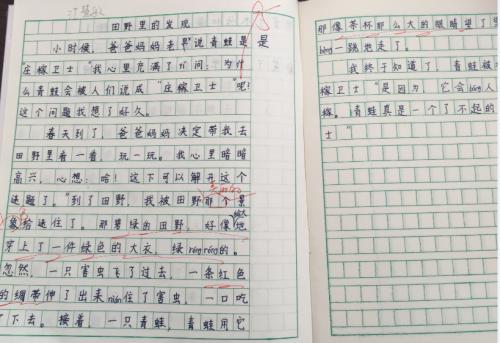 田野里的发现
小时候，爸爸妈妈老早"说青蛙是是
"庄稼卫士"我心里充满了 问：为什
么青蛙会被人们说成"庄稼卫士"呢？
这个问题我想了好久。
春天到了，爸爸妈妈决定带我去
田野里看一看，玩一玩。我心里暗暗
高兴，心想：哈！这下可以解开这个
迷题了。"到了田野，我被田野那个景
给迷住了。那碧绿的田野，好像给大地
穿上了一件绿色的大衣，绿róng róng的。
忽然，一只害虫飞了过去，一条红色
的绸带伸了出来nián住了害虫，一口吃
了下去。接着，一只青蛙，青蛙用它
那像茶杯那么大的眼睛望了
一跳地走了。
我终于知道了，青蛙被
稼卫士"是因为，它会bāng人
稼。青蛙真是一个了不起的
士"